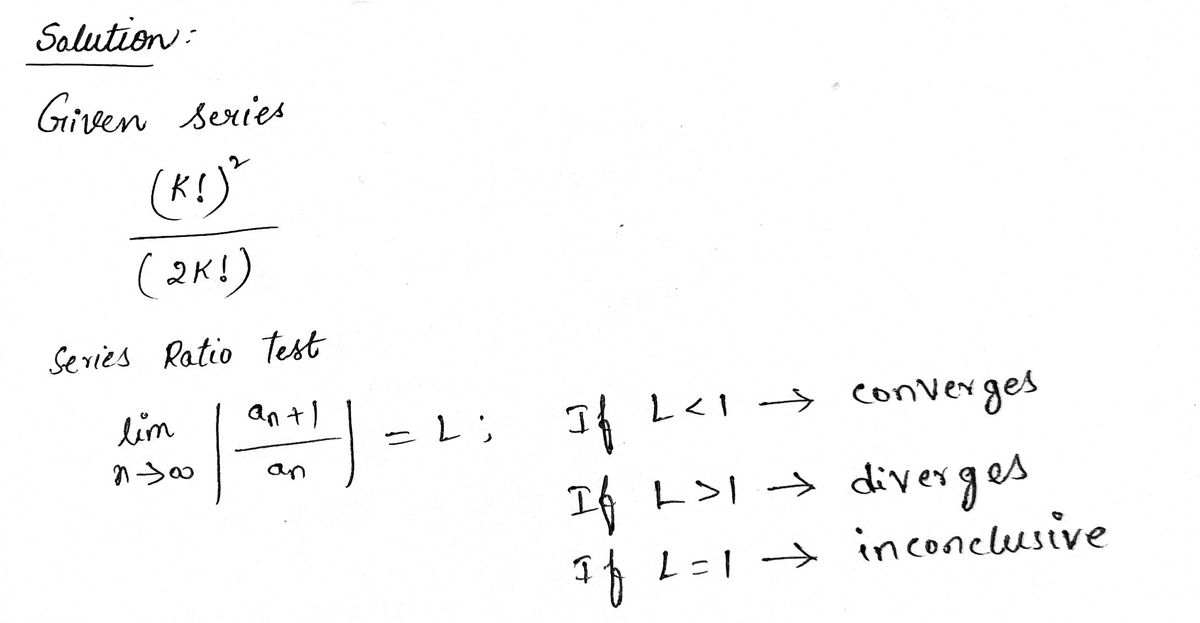 Solution:
Given series
(K!)²
(2K!)
Series Ratio test
lim n→∞ | an+1 / an | = L; If L<1 → converges
If L>1 → diverges
If L=1 → inconclusive